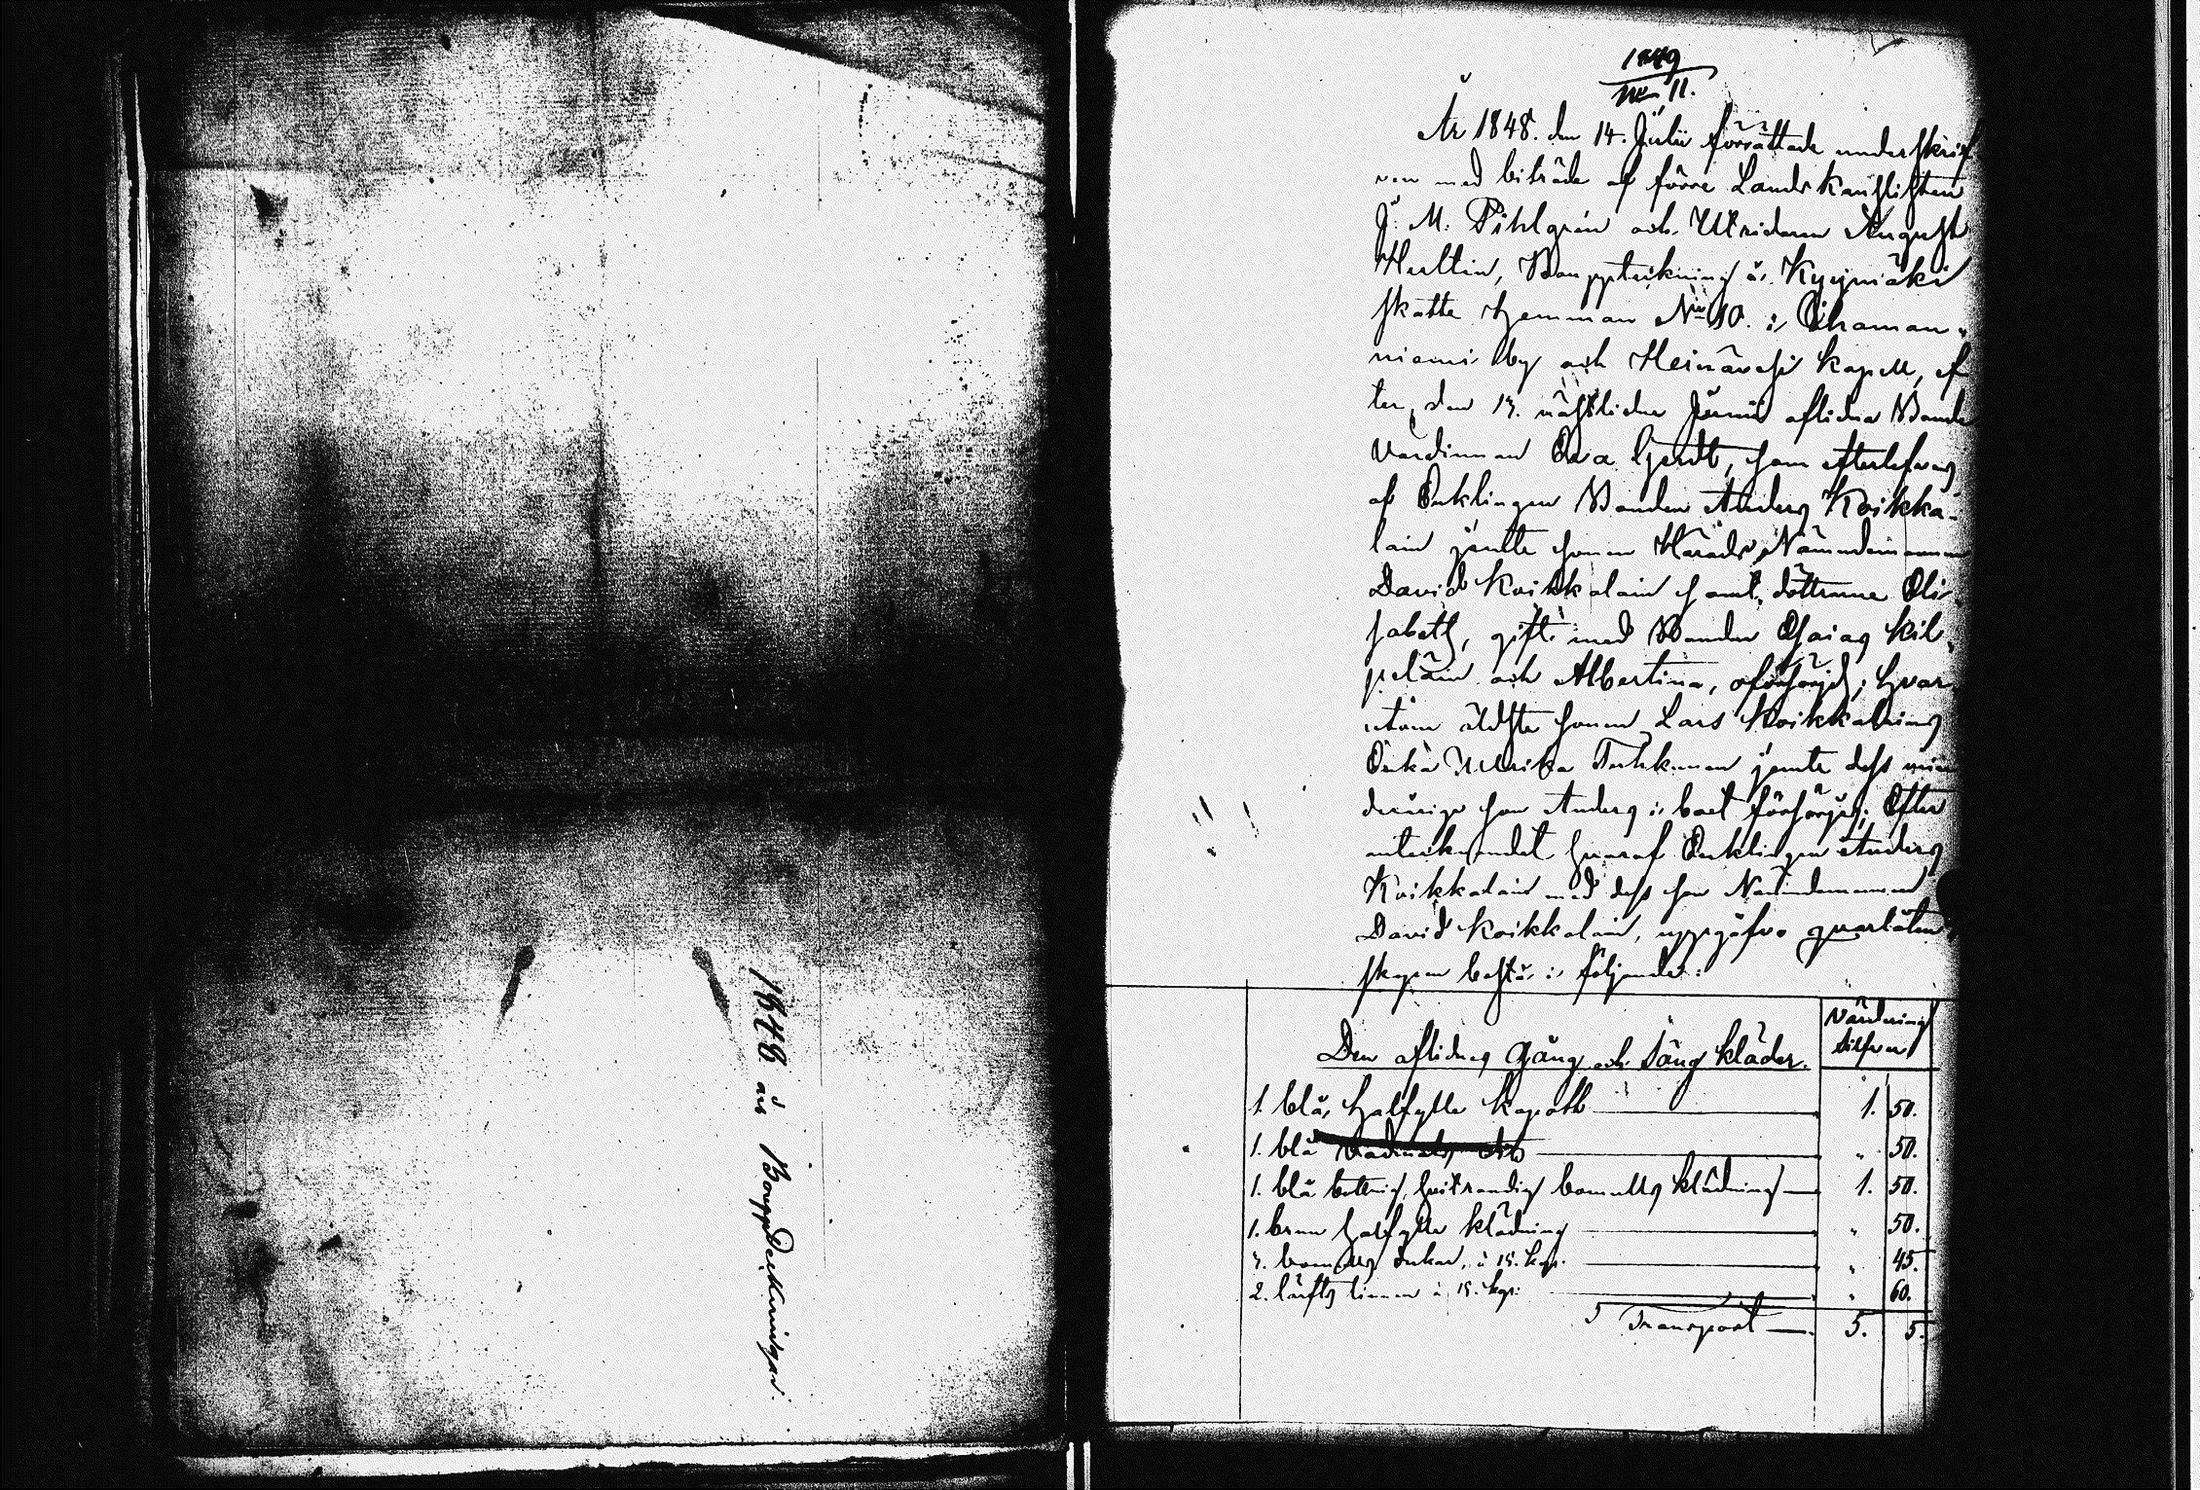 1848 års Bouppteckningar.
1849
No 11.
År 1848. den 14. Julii förrättade underskrif
ven med biträde af förre Landskanslisten
J. M. Pihlgrén och Utridaren August
Hertlin, Bouppteckning å Kyyjmäki
skatte hemman No 10. i Ihaman-
niemi by och Heinävesi kapell, ef
ter, den 13. nästlidne Junii aflidna Bonde
värdinnan Eva Gerdt, som efterlefves
af Enklingen Bonden Anders Koikka-
lain jemte sonen Härads Nämndemannen
David Koikkalain samt döttrarne Eli-
sabeth, gift med Bonden Esaias Kil-
peläin och Albertina, oförsörjd; hvar
utom äldste sonen Lars Koikkalains
Enka Ulrika Turkunen jemte dess min
derårige son Anders i boet försörjes; Efter
anteckandet hvaraf Enklingen Anders
Koikkalain med dess son Nämndemannen
David Koikkalain, uppgåfvo qvarlåten
skapen bestå i följande:
Värdering
Silfver
Den aflidnes Gång och Säng kläder.
1. blå halfylle kapott 1. 50.
1. blå vadmals dito " 50.
1. blå bottnig hvitrandig bomulls klädning 1. 50.
1. brun halfylle klädning " 50.
3. bomulls dukar, à 15. kop. " 45.
2. lärfts linnen à 15. kop. " 60.
Transport 5. 5.